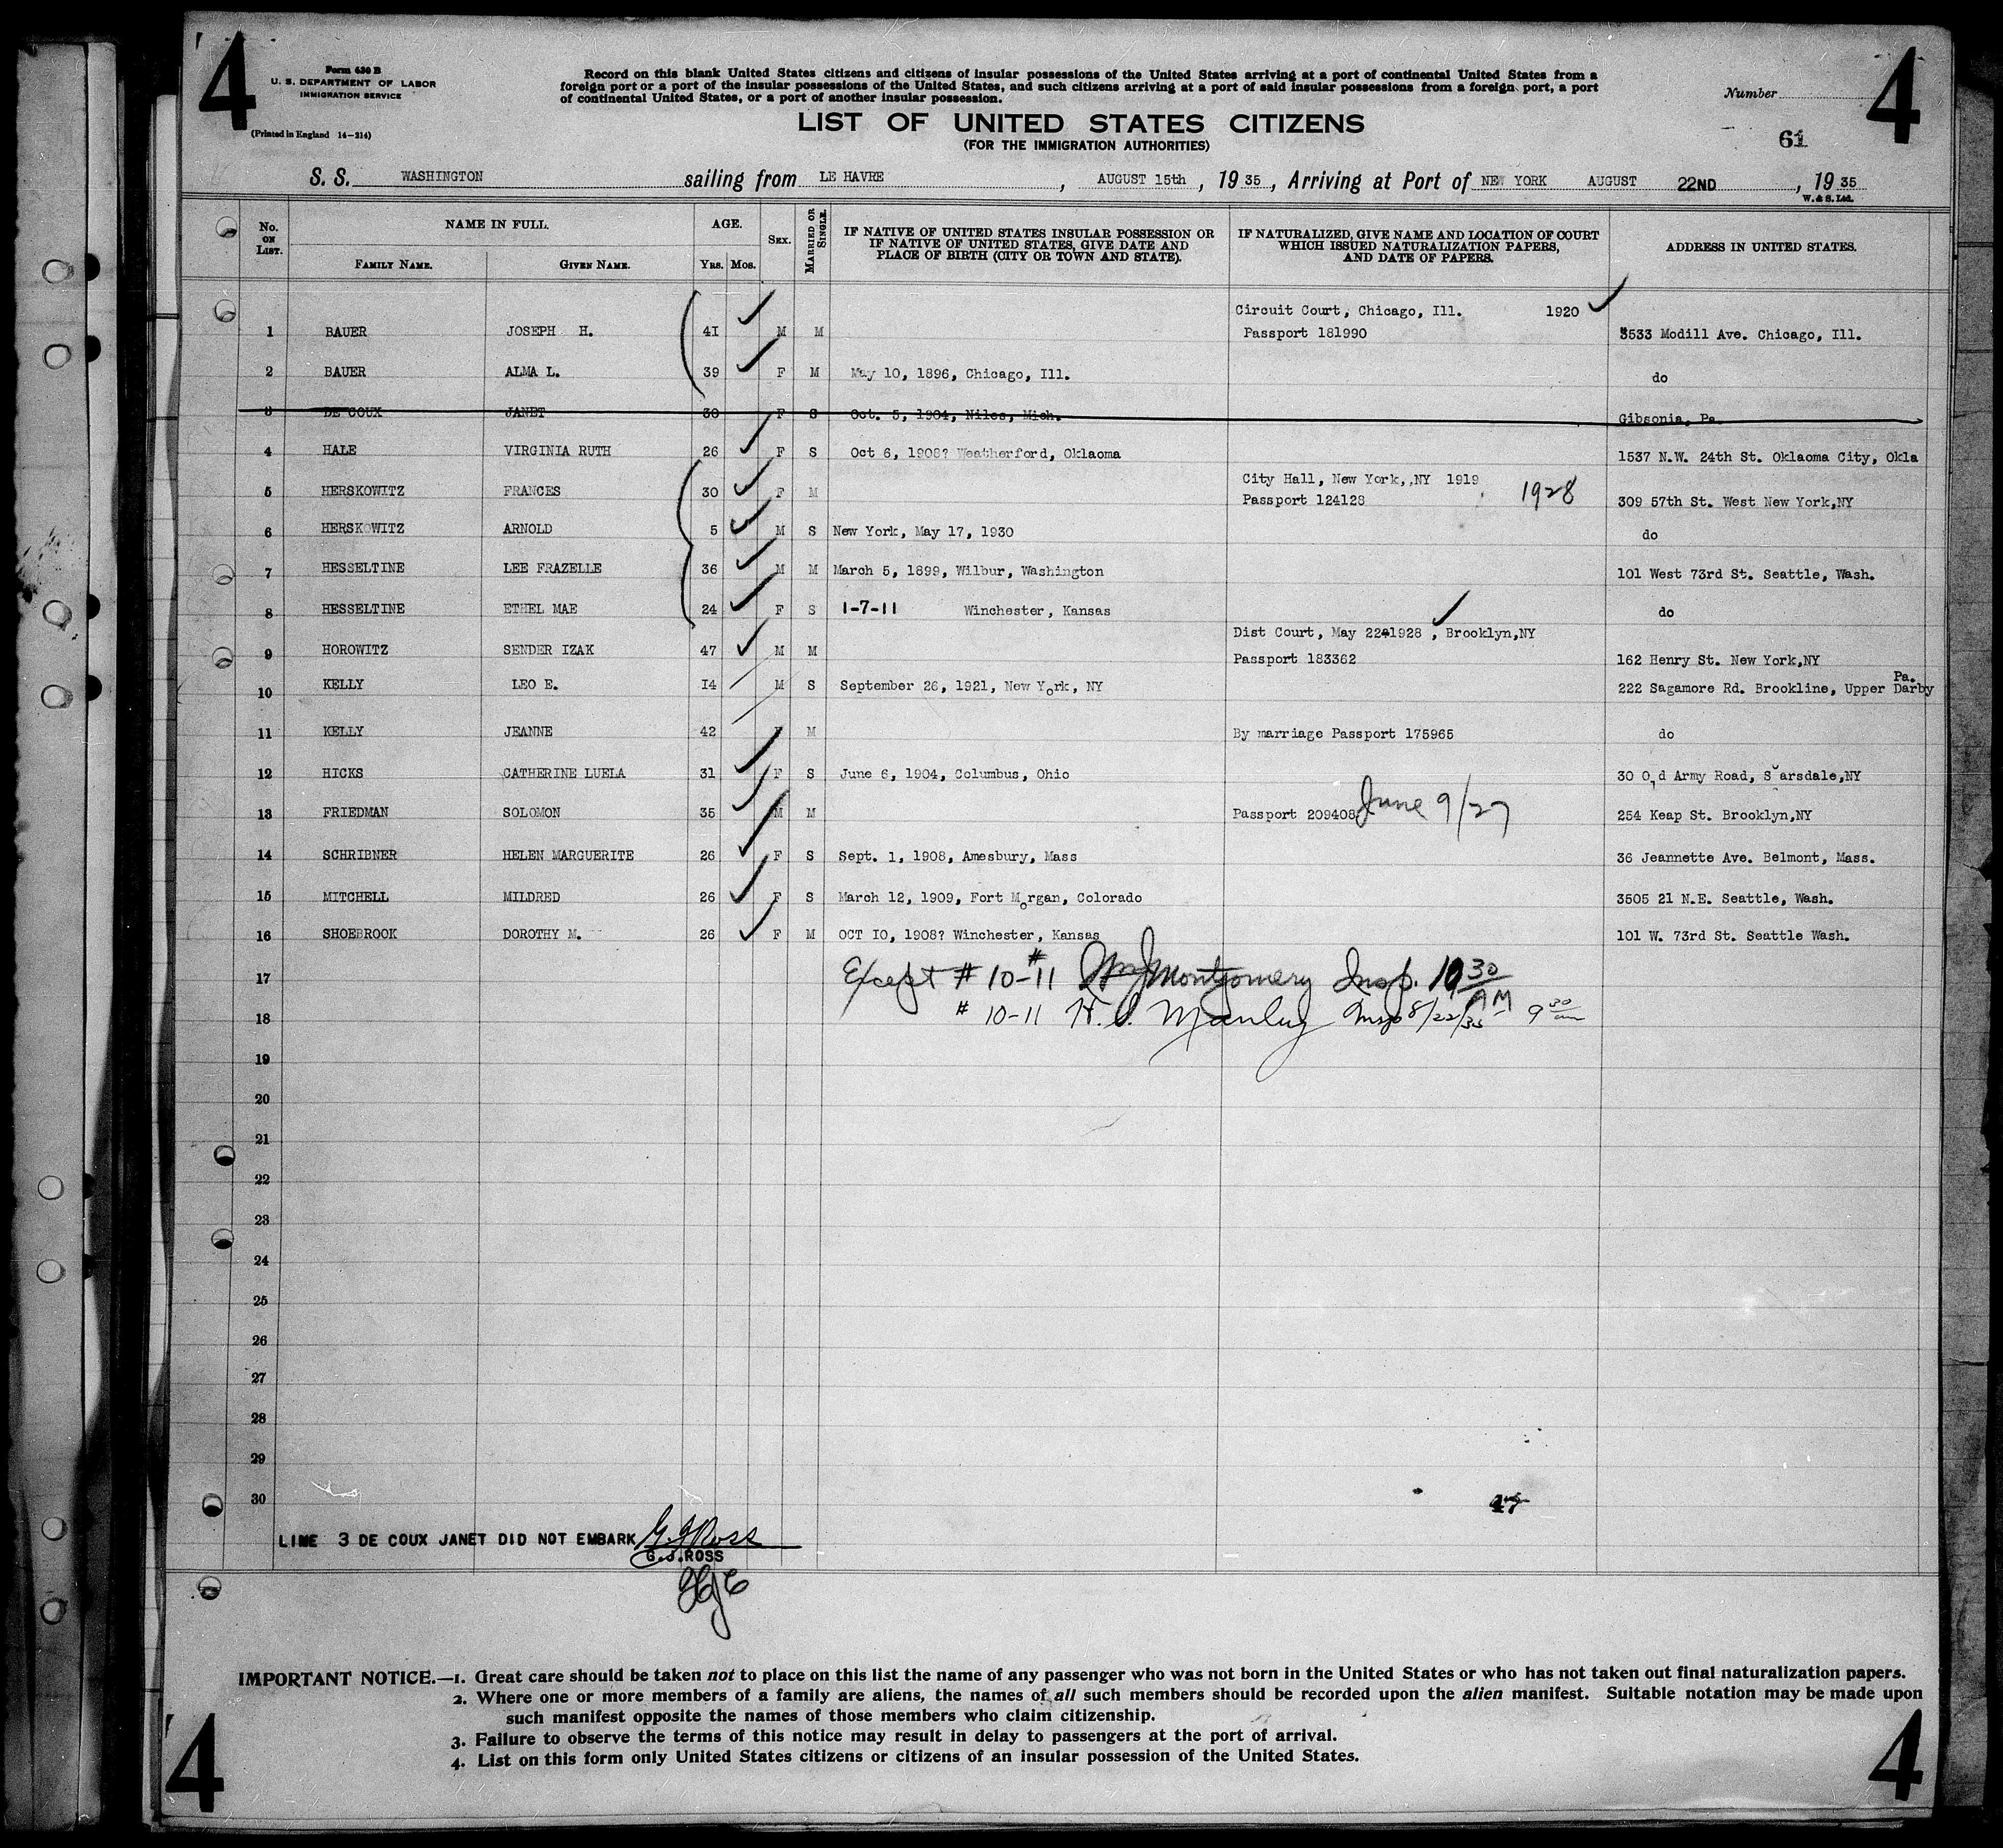 4
4
Form 630 B
U. S. DEPARTMENT OF LABOR
IMMIGRATION SERVICE
(Printed in England 14—214)
Record on this blank United States citizens and citizens of insular possessions of the United States arriving at a port of continental United States from a
foreign port or a port of the insular possessions of the United States, and such citizens arriving at a port of said insular possessions from a foreign port, a port
of continental United States, or a port of another insular possession.
Number
LIST OF UNITED STATES CITIZENS
(FOR THE IMMIGRATION AUTHORITIES)
61
S. S. WASHINGTON sailing from LE HAVRE, AUGUST 15th, 1935, Arriving at Port of NEW YORK AUGUST 22ND, 1935
W. & S. Ltd.
No. ON LIST. NAME IN FULL. AGE. SEX. MARRIED OR SINGLE. IF NATIVE OF UNITED STATES INSULAR POSSESSION OR IF NATIVE OF UNITED STATES, GIVE DATE AND PLACE OF BIRTH (CITY OR TOWN AND STATE). IF NATURALIZED, GIVE NAME AND LOCATION OF COURT WHICH ISSUED NATURALIZATION PAPERS, AND DATE OF PAPERS. ADDRESS IN UNITED STATES.
FAMILY NAME. GIVEN NAME. YRS. MOS.
Circuit Court, Chicago, Ill. 1920
1 BAUER JOSEPH H. 41 M M Passport 181990 3533 Modill Ave. Chicago, Ill.
2 BAUER ALMA L. 39 F M May 10, 1896, Chicago, Ill. do
3 DE COUX JANET 30 F S Oct. 5, 1904, Niles, Mich. Gibsonia, Pa.
4 HALE VIRGINIA RUTH 26 F S Oct 6, 1908? Weatherford, Oklaoma 1537 N.W. 24th St. Oklaoma City, Okla
City Hall, New York,,NY 1919
5 HERSKOWITZ FRANCES 30 F M Passport 124128 1928 309 57th St. West New York,NY
6 HERSKOWITZ ARNOLD 5 M S New York, May 17, 1930 do
7 HESSELTINE LEE FRAZELLE 36 M M March 5, 1899, Wilbur, Washington 101 West 73rd St. Seattle, Wash.
8 HESSELTINE ETHEL MAE 24 F S 1-7-11 Winchester, Kansas do
Dist Court, May 22 1928, Brooklyn,NY
9 HOROWITZ SENDER IZAK 47 M M Passport 183362 162 Henry St. New York,NY
Pa.
10 KELLY LEO E. 14 M S September 26, 1921, New York, NY 222 Sagamore Rd. Brookline, Upper Darby
11 KELLY JEANNE 42 F M By marriage Passport 175965 do
12 HICKS CATHERINE LUELA 31 F S June 6, 1904, Columbus, Ohio 30 Old Army Road, Scarsdale,NY
13 FRIEDMAN SOLOMON 35 M M Passport 209408 June 9/27 254 Keap St. Brooklyn,NY
14 SCHRIBNER HELEN MARGUERITE 26 F S Sept. 1, 1908, Amesbury, Mass 36 Jeannette Ave. Belmont, Mass.
15 MITCHELL MILDRED 26 F S March 12, 1909, Fort Morgan, Colorado 3505 21 N.E. Seattle, Wash.
16 SHOEBROOK DOROTHY M. 26 F M OCT 10, 1908? Winchester, Kansas 101 W. 73rd St. Seattle Wash.
17 Except # 10-#11 Montgomery Insp. 10 30 AM
18 # 10-11 H. Manley Insp 8/22/35 9 30 am
19
20
21
22
23
24
25
26
27
28
29
30 47
LINE 3 DE COUX JANET DID NOT EMBARK G J Ross
G.J.ROSS
IMPORTANT NOTICE.—1. Great care should be taken not to place on this list the name of any passenger who was not born in the United States or who has not taken out final naturalization papers.
2. Where one or more members of a family are aliens, the names of all such members should be recorded upon the alien manifest. Suitable notation may be made upon
such manifest opposite the names of those members who claim citizenship.
3. Failure to observe the terms of this notice may result in delay to passengers at the port of arrival.
4. List on this form only United States citizens or citizens of an insular possession of the United States.
4
4